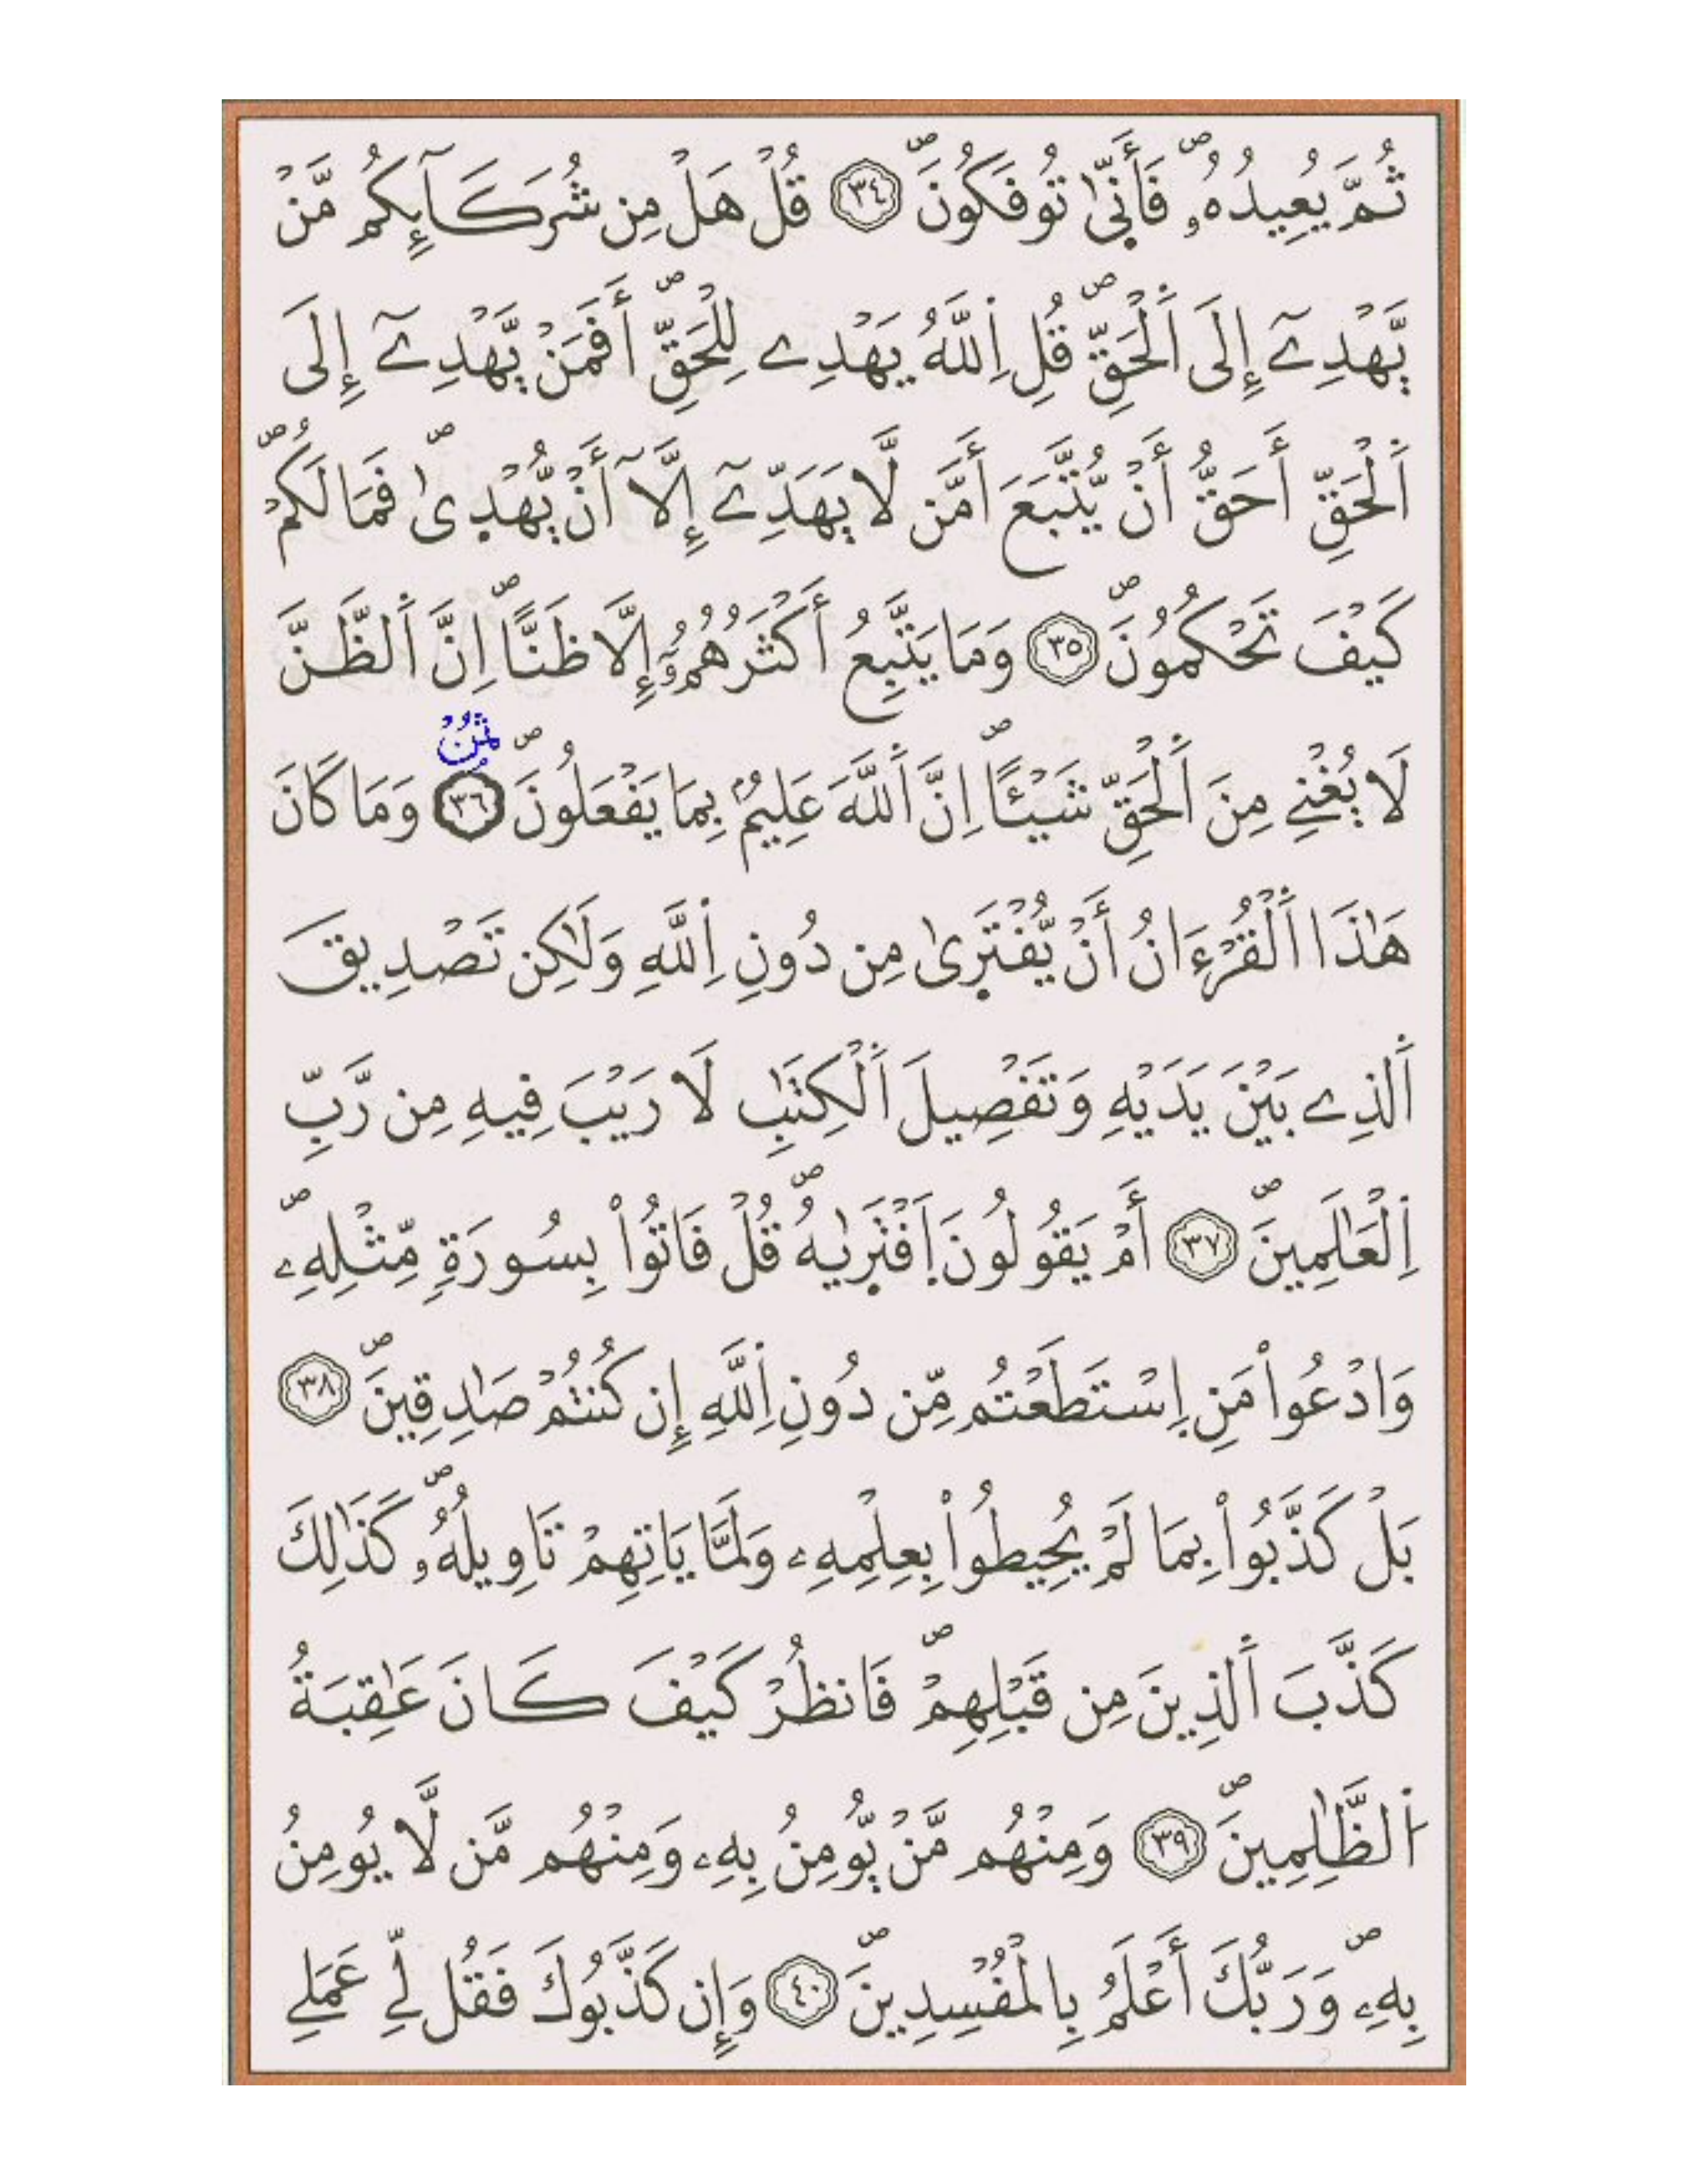 ثُمَّ يُعِيدُهُۥۖ فَأَنّ۪يٰ تُوفَكُونَۖ ٣٤ قُلْ هَلْ مِن شُرَكَآئِكُم مَّنْ
يَّهْدِےٓ إِلَى اَ۬لْحَقِّۖ قُلِ اِ۬للَّهُ يَهْدِے لِلْحَقِّۖ أَفَمَنْ يَّهْدِےٓ إِلَى
اَ۬لْحَقِّ أَحَقُّ أَنْ يُّتَّبَعَ أَمَّن لَّا يَهَدِّےٓ إِلَّآ أَنْ يُّهْد۪ىٰۖ فَمَا لَكُمْۖ
كَيْفَ تَحْكُمُونَۖ ٣٥ وَمَا يَتَّبِعُ أَكْثَرُهُمُۥٓ إِلَّا ظَنّاًۖ اِنَّ اَ۬لظَّنَّ
ثمن
لَا يُغْنِے مِنَ اَ۬لْحَقِّ شَيْـٔاًۖ اِنَّ اَ۬للَّهَ عَلِيمُۢ بِمَا يَفْعَلُونَۖ ٣٦ وَمَا كَانَ
هَٰذَا اَ۬لْقُرْءَانُ أَنْ يُّفْتَر۪ىٰ مِن دُونِ اِ۬للَّهِ وَلَٰكِن تَصْدِيقَ
اَ۬لذِے بَيْنَ يَدَيْهِ وَتَفْصِيلَ اَ۬لْكِتَٰبِ لَا رَيْبَ فِيهِ مِن رَّبِّ
اِ۬لْعَٰلَمِينَۖ ٣٧ أَمْ يَقُولُونَ اَ۪فْتَر۪يٰهُۖ قُلْ فَاتُواْ بِسُورَةٖ مِّثْلِهِۦۖ
وَادْعُواْ مَنِ اِ۪سْتَطَعْتُم مِّن دُونِ اِ۬للَّهِ إِن كُنتُمْ صَٰدِقِينَۖ ٣٨
بَلْ كَذَّبُواْ بِمَا لَمْ يُحِيطُواْ بِعِلْمِهِۦ وَلَمَّا يَاتِهِمْ تَاوِيلُهُۥۖ كَذَٰلِكَ
كَذَّبَ اَ۬لذِينَ مِن قَبْلِهِمْۖ فَانظُرْ كَيْفَ كَانَ عَٰقِبَةُ
اُ۬لظَّٰلِمِينَۖ ٣٩ وَمِنْهُم مَّنْ يُّومِنُ بِهِۦ وَمِنْهُم مَّن لَّا يُومِنُ
بِهِۦۖ وَرَبُّكَ أَعْلَمُ بِالْمُفْسِدِينَۖ ٤٠ وَإِن كَذَّبُوكَ فَقُل لِّے عَمَلِے